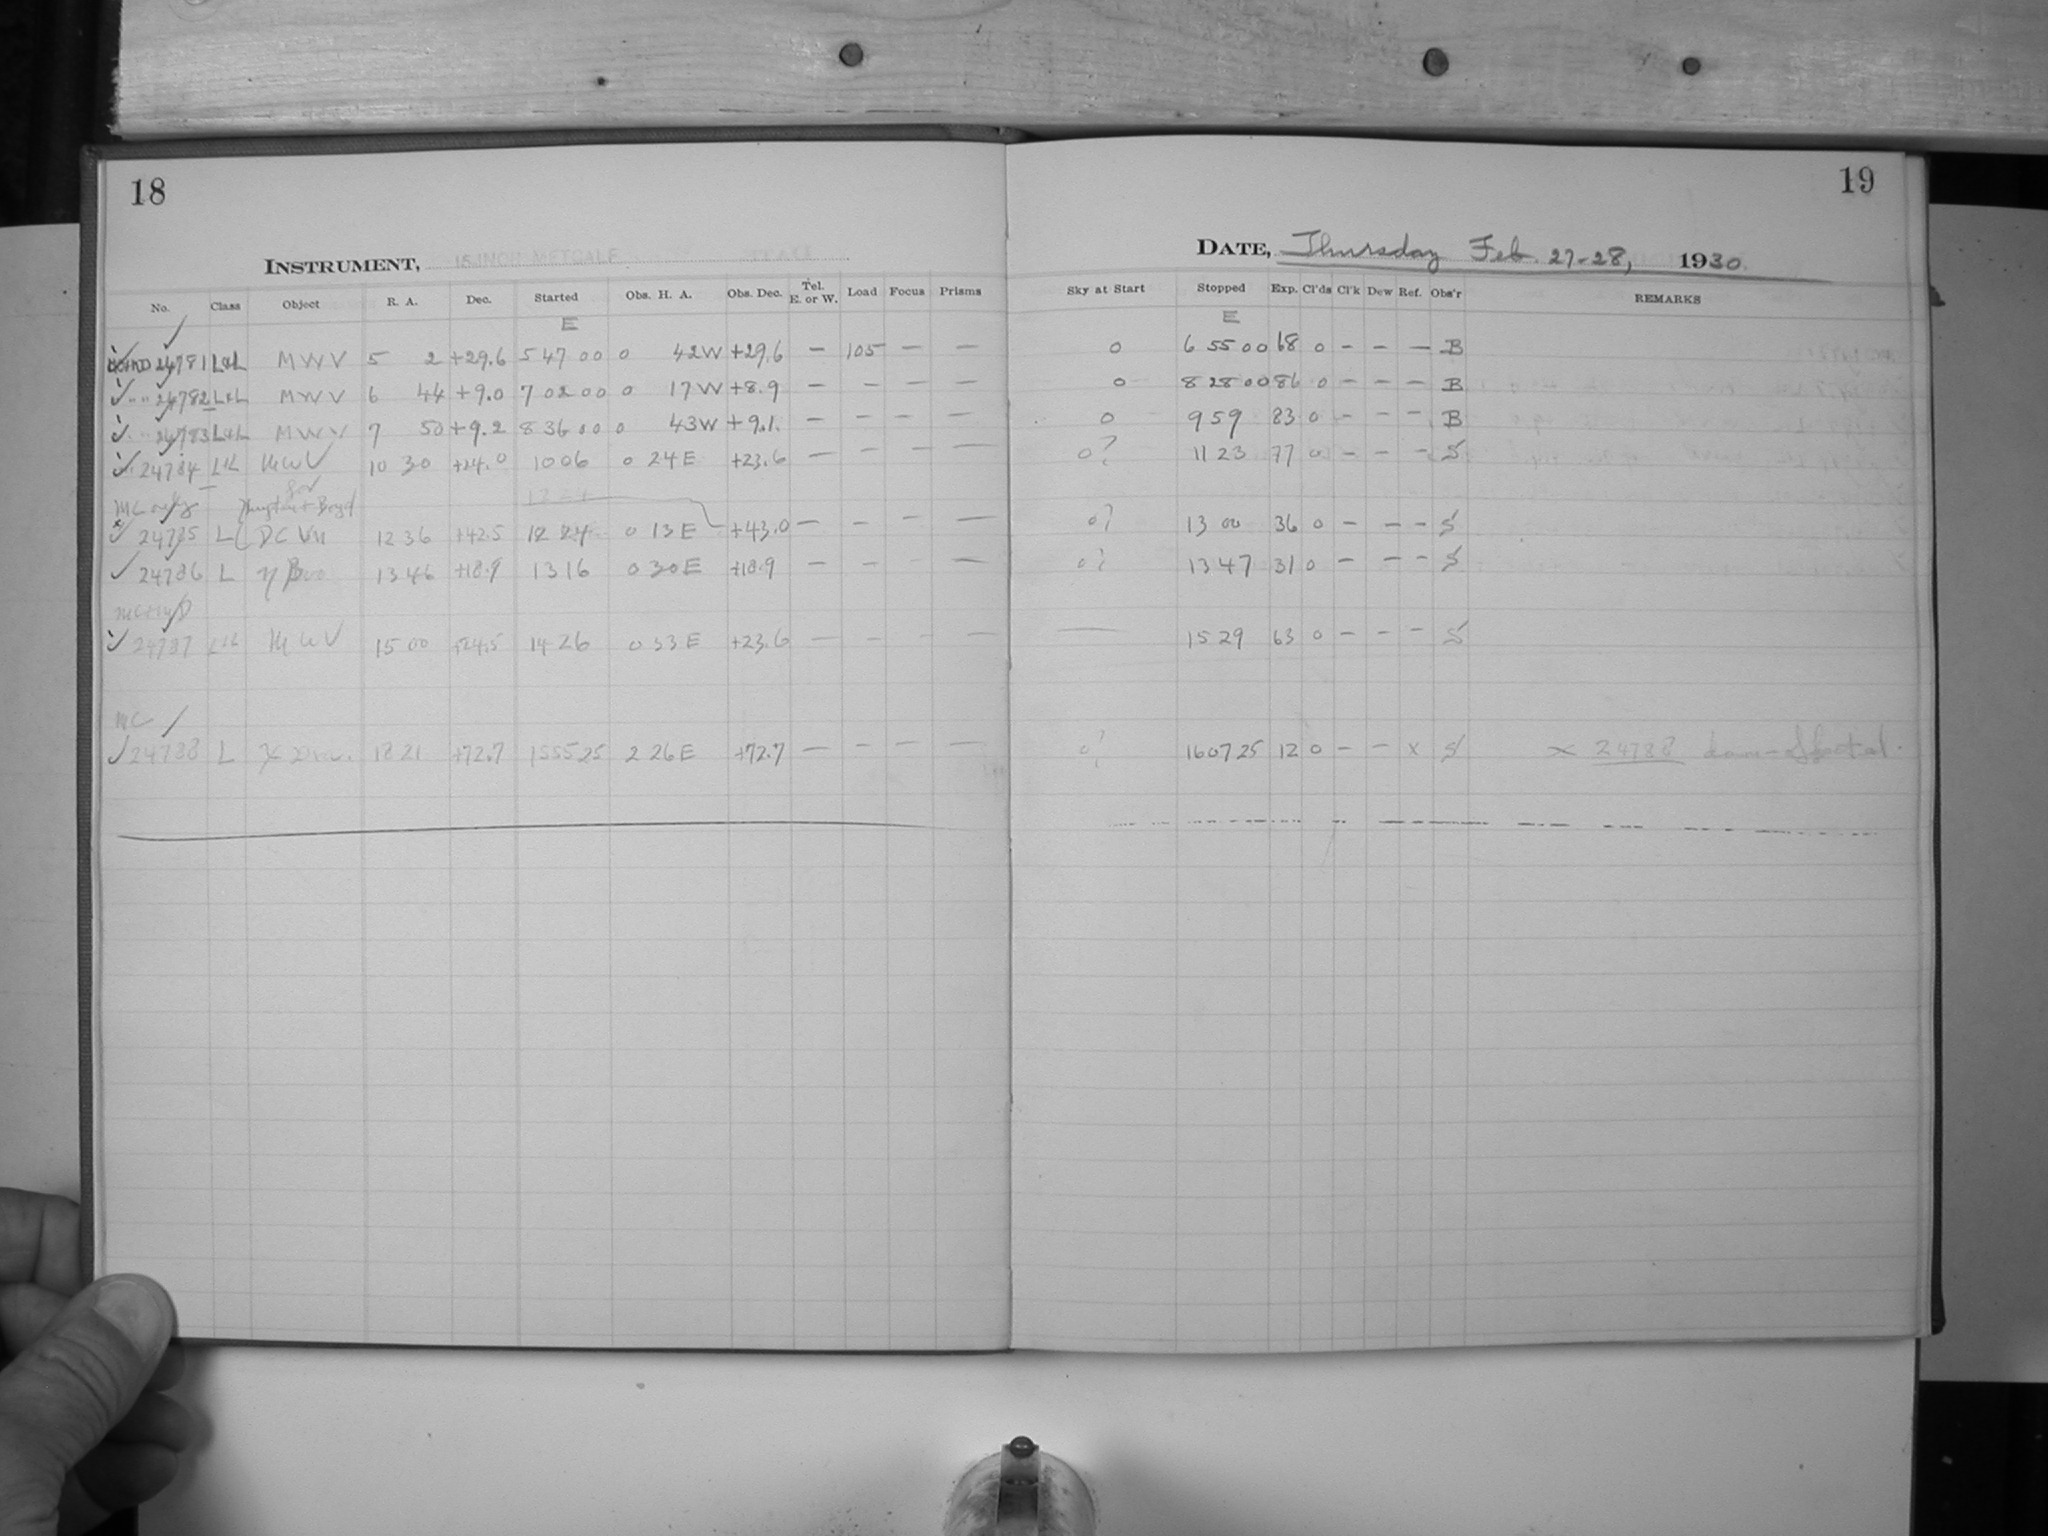 18
INSTRUMENT, 16-INCH METCALF
No. Class Object R. A. Dec. Started Obs. H. A. Obs. Dec. Tel. E. or W. Load Focus Prisms
E
24781 L+L MWV 5 2 +29.6 5 47 00 0 42W +29.6 — 105 — —
" " 24782 L+L MWV 6 44 +9.0 7 02 00 0 17W +8.9 — — — —
" " 24783 L+L MWV 7 50 +9.2 8 36 00 0 43W +9.1 — — — —
24784 L+L MWV 10 30 +24.0 10 06 0 24E +23.6 — — — —
for
MC only Boyd
24785 L DC Vn 12 36 +42.5 12 24 0 13E +43.0 — — — —
24786 L η Boo 13 46 +18.9 13 16 0 30E +18.9 — — — —
24787 L+L MWV 15 00 +24.5 14 26 0 33E +23.6 — — — —
MC
24788 L χ Drac. 18 21 +72.7 15 55 25 2 26E +72.7 — — — —
19
DATE, Thursday Feb. 27-28, 1930.
Sky at Start Stopped Exp. Cl'ds Cl'k Dew Ref. Obs'r REMARKS
E
0 6 55 00 68 0 – – — B
0 8 28 00 86 0 – – – B
0 9 59 83 0 – – – B
0? 11 23 77 0 – – – S
0? 13 00 36 0 – – – S
0? 13 47 31 0 – – – S
— 15 29 63 0 – – – S
0? 16 07 25 12 0 – – x S x 24788 dawn-affected.